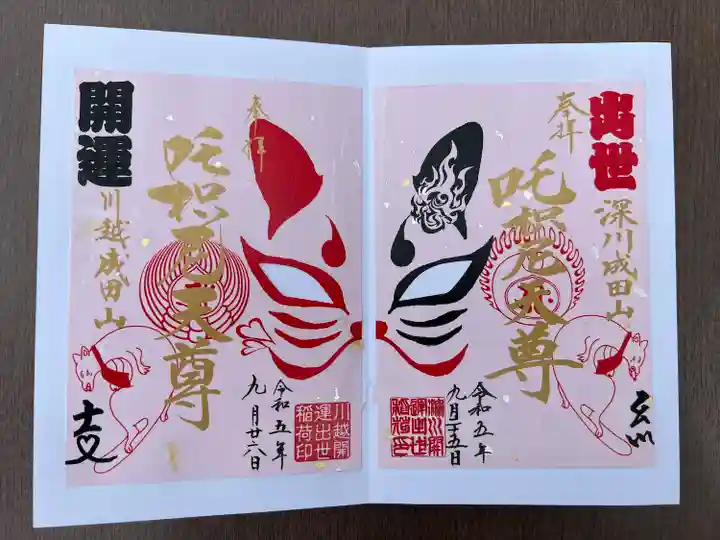 出世
奉拝
深川成田山
吒枳尼天尊
令和五年
九月二十五日
深川開
運出世
稲荷印
奉拝
開運
川越成田山
吒枳尼天尊
令和五年
九月廿六日
川越開
運出世
稲荷印